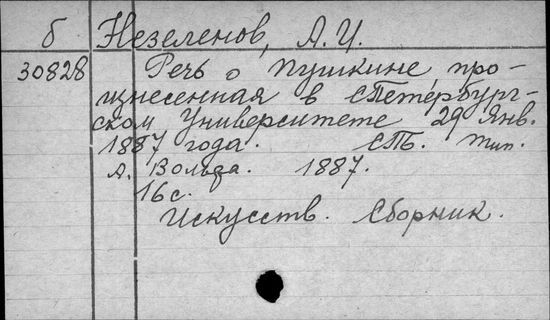 б Незеленов, А. И.
30828 Речь о Пушкине, про-
изнесенная в СПетербург-
ском Университете 29 Янв.
1887 года. СПБ. тип.
А. Вольфа. 1887.
16 с.
Искусств. Сборник.